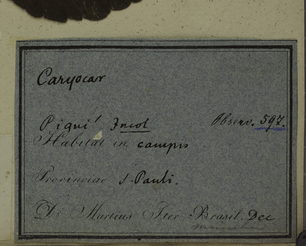 Caryocar
Piqui Incol Observ. 597.
Habitat in campis
Provinciae S. Pauli.
D. Martius Iter Brasil. Dec